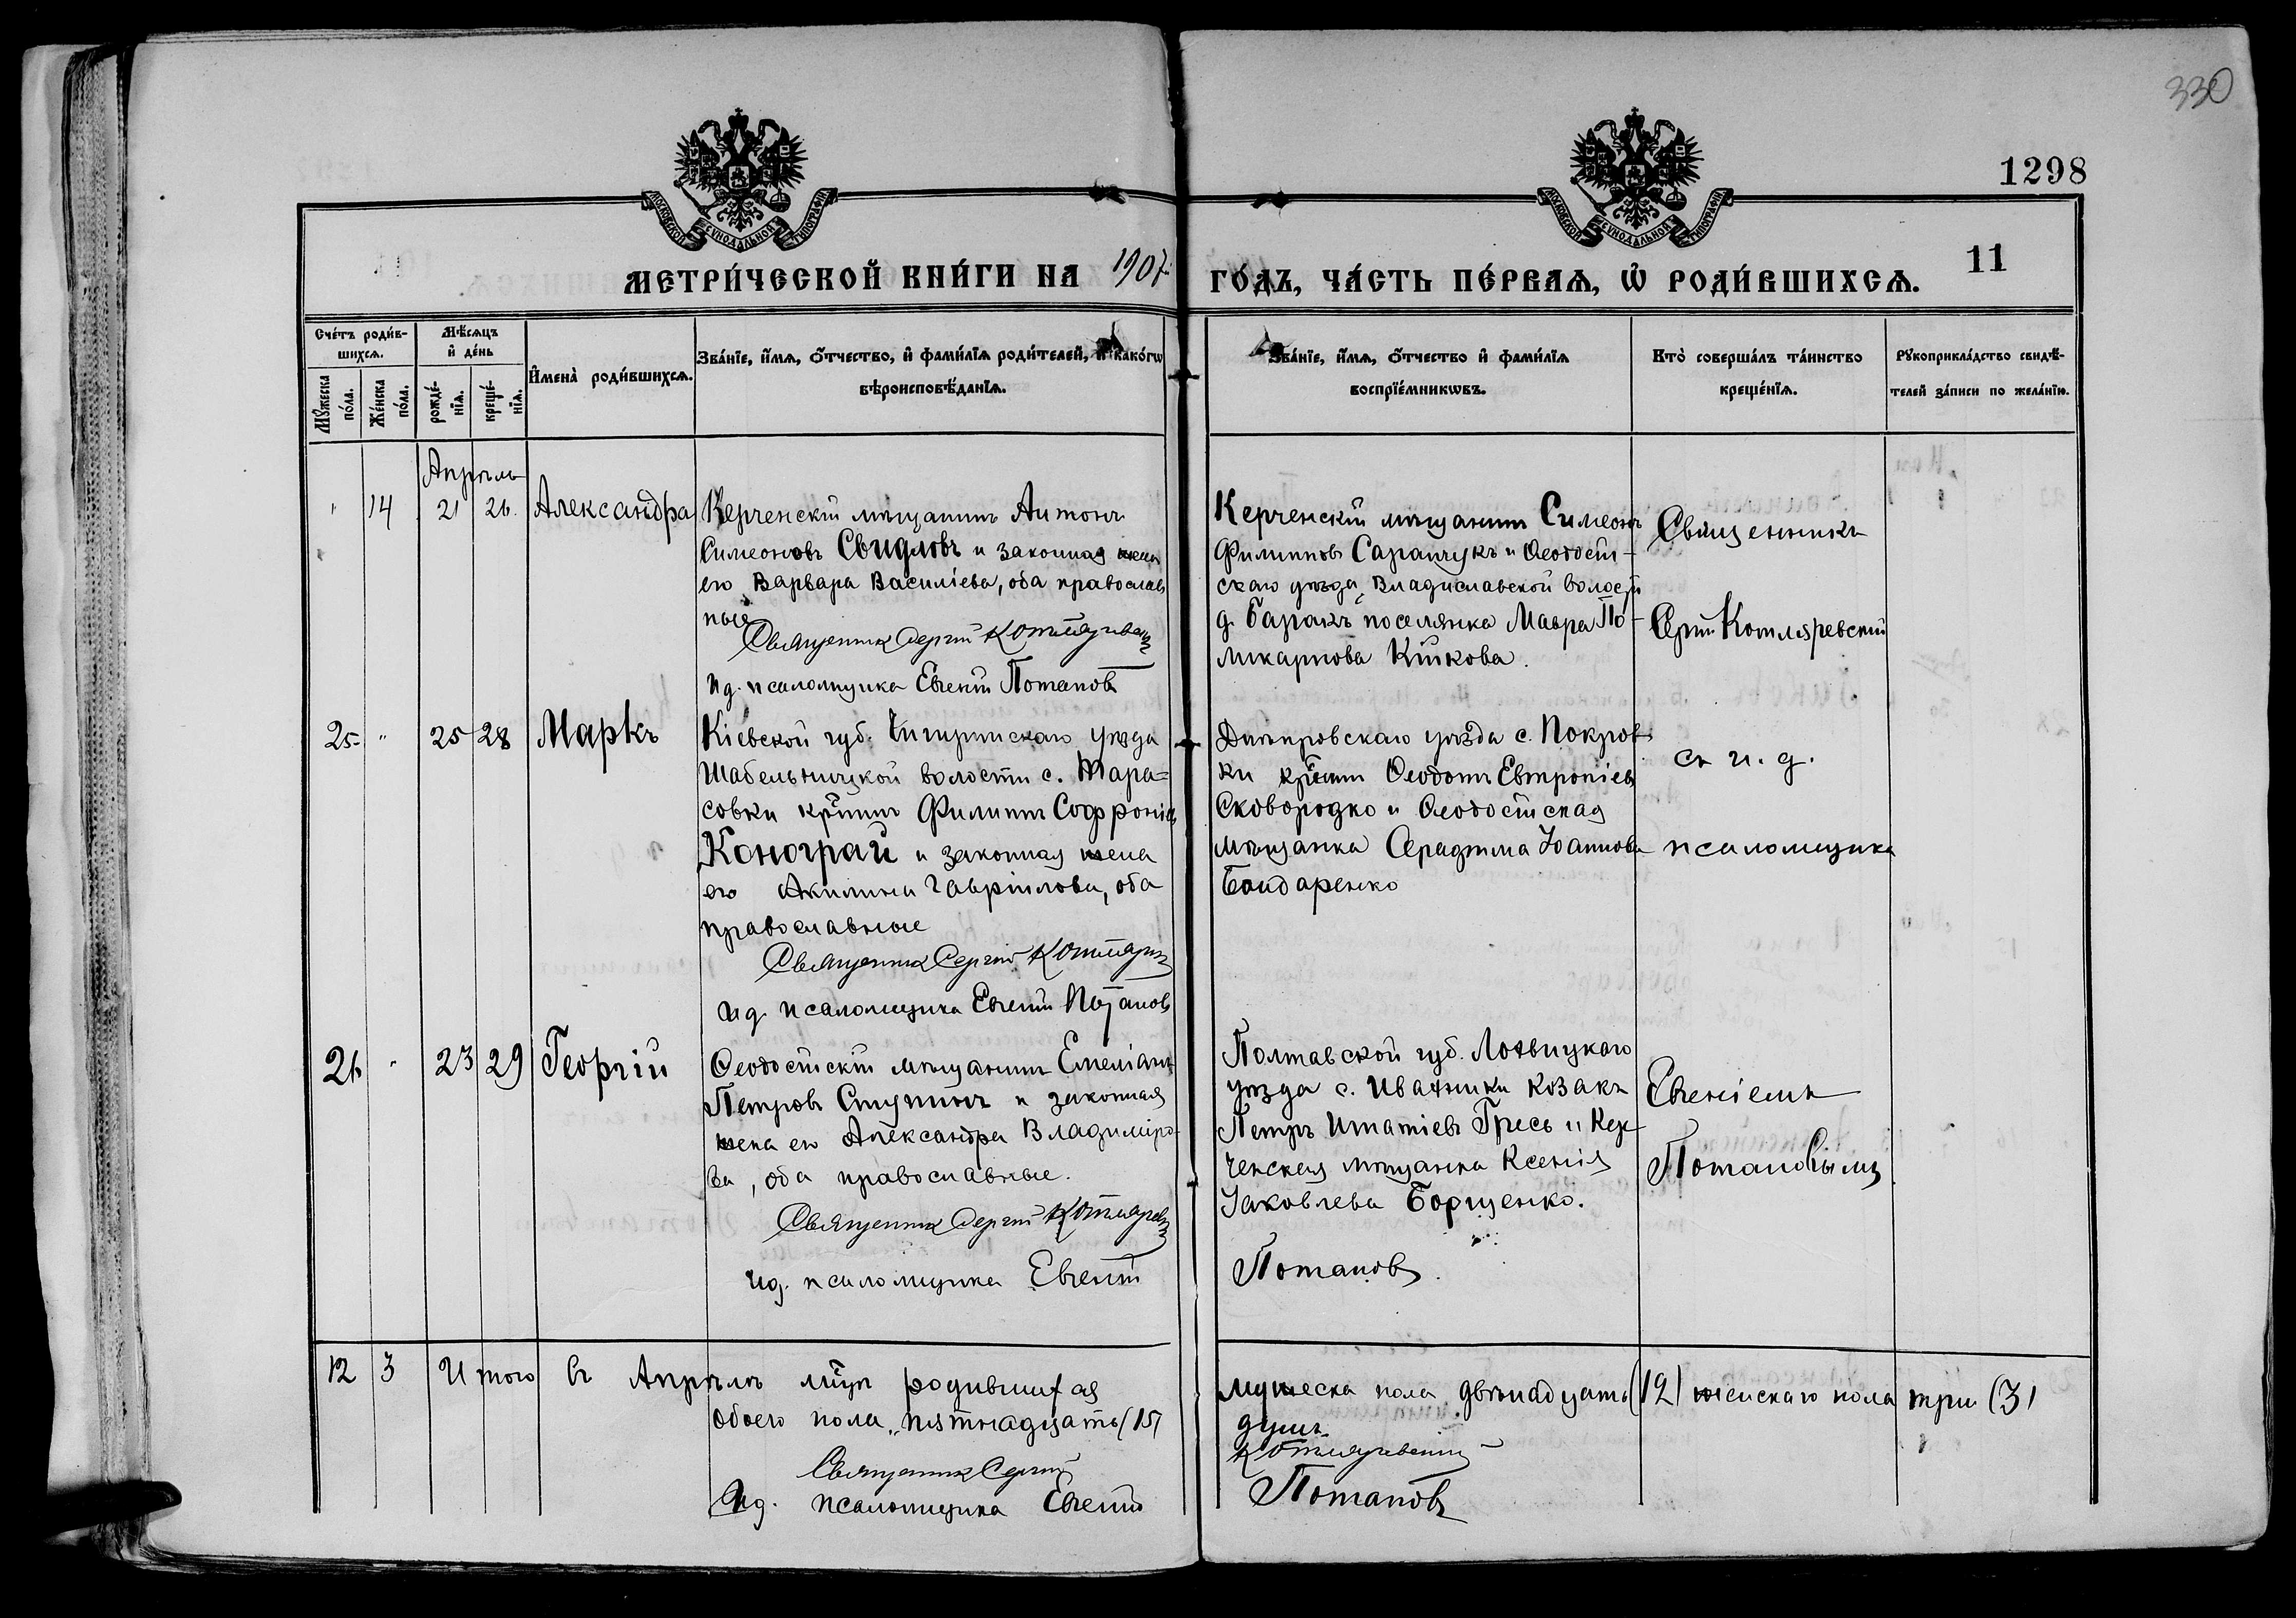 330
1298
МОСКОВСКОЙ СѴНОДАЛЬНОЙ ТИПОГРАФІИ
МОСКОВСКОЙ СѴНОДАЛЬНОЙ ТИПОГРАФІИ
МЕТРИ́ЧЕСКОЙ КНИ́ГИ НА 1907 ГО́ДЪ, ЧА́СТЬ ПЕ́РВАѦ, Ѡ҆ РОДИ́ВШИХСѦ.
11
Сче́тъ роди́в-
шихсѧ.
Мꙋ́жеска по́ла.
Же́нска по́ла.
Мѣ́сѧцъ
и҆ де́нь
рожде́-
нїѧ.
креще́-
нїѧ.
И҆мена̀ роди́вшихсѧ.
Зва́нїе, и҆́мѧ, ѻ҆́тчество, и҆ фами́лїѧ роди́телей, и҆ како́гѡ
вѣроисповѣ́данїѧ.
Зва́нїе, и҆́мѧ, ѻ҆́тчество и҆ фами́лїѧ
воспрїе́мникѡвъ.
Кто̀ соверша́лъ та́инство
креще́нїѧ.
Рꙋкоприкла́дство свидѣ́-
телей за́писи по жела́нїю.
Апрѣль
" 14 21 26. Александра
Керченскій мѣщанинъ Антонъ
Симеоновъ Свидловъ и законная жена
его Варвара Василіева, оба православ
ные
Священникъ Сергій Котляревскій
И д. псаломщика Евгеній Потаповъ
Керченскій мѣщанинъ Симеонъ
Филипповъ Саранчукъ и Ѳеодосій-
скаго уѣзда, Владиславской волости
д. Баракъ поселянка Мавра По-
ликарпова Кішкова.
Священникъ
Сергій Котляревскій
25 " 25 28 Маркъ
Кіевской губ. Чигиринскаго уѣзда
Шабельницкой волости с. Тара=
совки кр҃инъ Филиппъ Софроніевъ
Конограй и законная жена
его Акилина Гавріилова, оба
православные
Священникъ Сергій Котлярев
И д. псаломщика Евгеній Потаповъ
Днѣпровскаго уѣзда с. Покров
ки кр҃инъ Ѳеодотъ Евтропіевъ
Сковородко и Ѳеодосійская
мѣщанка Серафима Іоаннова
Бондаренко
съ и. д.
псаломщика
26 " 23 29 Георгій
Ѳеодосійскій мѣщанинъ Емеліанъ
Петровъ Ступинъ и законная
жена его Александра Владиміро-
ва, оба православные.
Священникъ Сергій Котляревскій
И д. псаломщика Евгеній
Полтавской губ. Лохвицкаго
уѣзда с. Иваники козакъ
Петръ Игнатіевъ Гресь и Кер-
ченская мѣщанка Ксенія
Іаковлева Борщенко.
Потаповъ.
Евгеніемъ
Потаповымъ
12 3 Итого въ Апрѣлѣ мц҃ѣ родившихся
обоего пола „пятнадцать (15)
мужеска пола двѣнадцать (12) женскаго пола три (3)
душъ
Священникъ Сергій
Котляревскій
И д. псаломщика Евгеній
Потаповъ